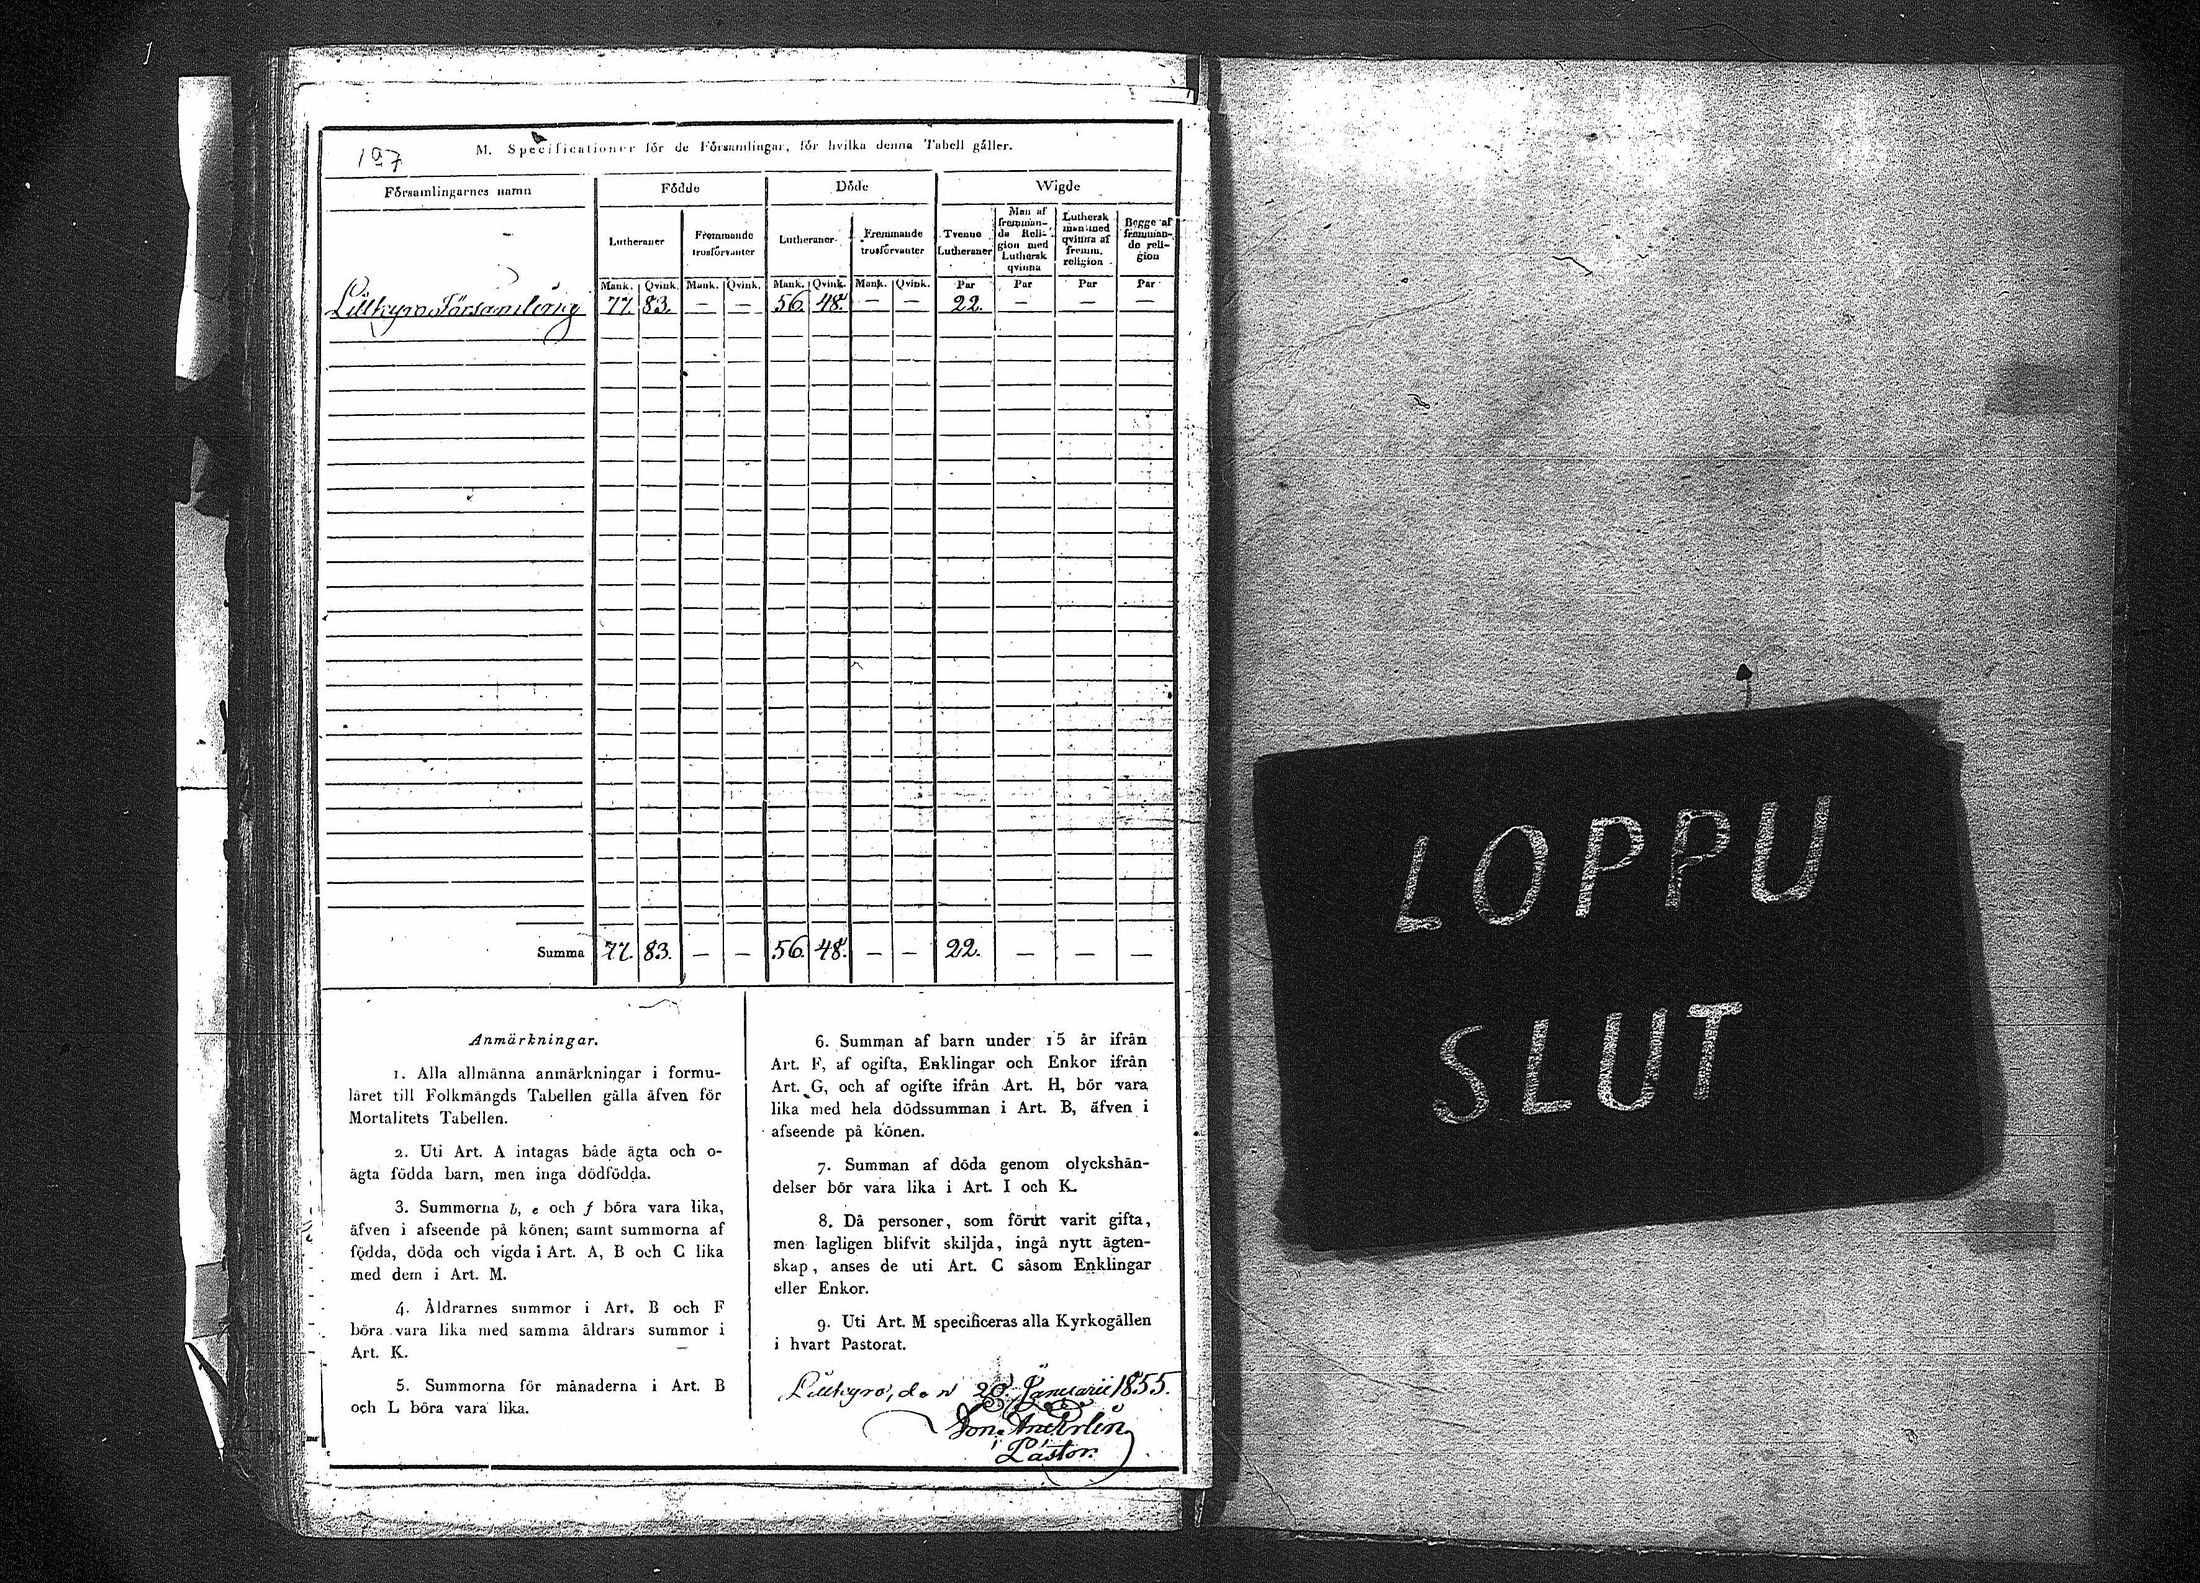 197
M. Specificationer för de Församlingar, för hvilka denna Tabell gäller.
Församlingarnes namn
Födde
Döde
Wigde
Lutheraner
Fremmande trosförvanter
Lutheraner
Fremmande trosförvanter
Tvenne Lutheraner
Man af fremmande Religion med Luthersk qvinna
Luthersk man med qvinna af fremm. religion
Begge af fremmande religion
Mank. Qvink. Mank. Qvink. Mank. Qvink. Mank. Qvink. Par Par Par Par
Lillkyro Församling 77. 83. — — 56. 48. — — 22. — — —
Summa 77. 83. — — 56. 48. — — 22. — — —
Anmärkningar.
1. Alla allmänna anmärkningar i formu-
läret till Folkmängds Tabellen gälla äfven för
Mortalitets Tabellen.
2. Uti Art. A intagas både ägta och o-
ägta födda barn, men inga dödfödda.
3. Summorna b, e och f böra vara lika,
äfven i afseende på könen; samt summorna af
födda, döda och vigda i Art. A, B och C lika
med dem i Art. M.
4. Åldrarnes summor i Art. B och F
böra vara lika med samma åldrars summor i
Art. K.
5. Summorna för månaderna i Art. B
och L böra vara lika.
6. Summan af barn under 15 år ifrån
Art. F, af ogifta, Enklingar och Enkor ifrån
Art. G, och af ogifte ifrån Art. H, bör vara
lika med hela dödssumman i Art. B, äfven i
afseende på könen.
7. Summan af döda genom olyckshän-
delser bör vara lika i Art. I och K.
8. Då personer, som förut varit gifta,
men lagligen blifvit skiljda, ingå nytt ägten-
skap, anses de uti Art. C såsom Enklingar
eller Enkor.
9. Uti Art. M specificeras alla Kyrkogällen
i hvart Pastorat.
Lillkyro, den 20. Januarii 1855.
Pastor.
LOPPU
SLUT